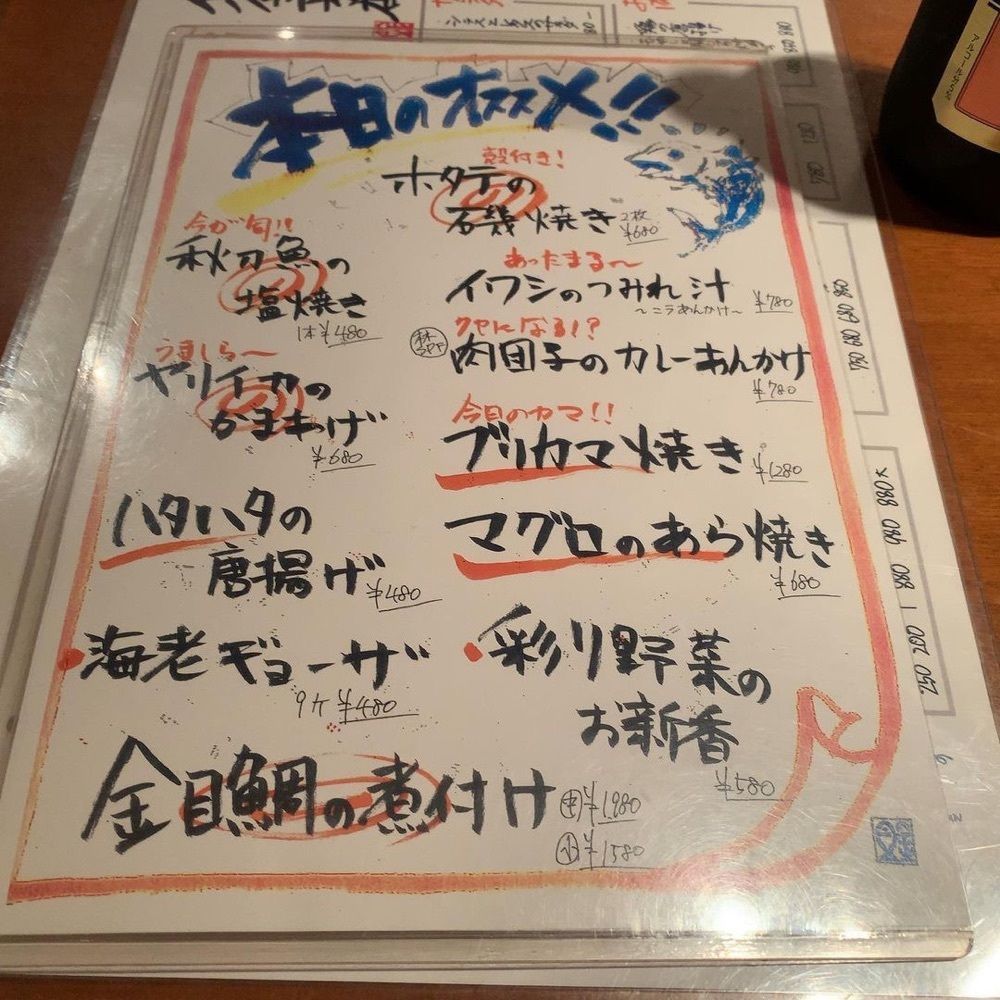 本日のオススメ!!
殻付き!
ホタテの
石幾焼き 2枚 ¥680
今が旬!!
秋刀魚の
塩焼き
1本¥480
あったまる〜
イワシのつみれ汁 ¥780
〜ニラあんかけ〜
うましら〜
ヤリイカの
かまあげ
¥680
クセになる!?
肉団子のカレーあんかけ
¥780
今日のカマ!!
ブリカマ焼き ¥1280
ハタハタの
唐揚げ ¥480
マグロのあら焼き
¥680
海老ギョーザ
9ケ ¥480
彩り野菜の
お新香
¥580
金目鯛の煮付け 中 ¥1,980
小 ¥1580
アルコール分5%
780
730 680 680 880
250 200 880 980 880